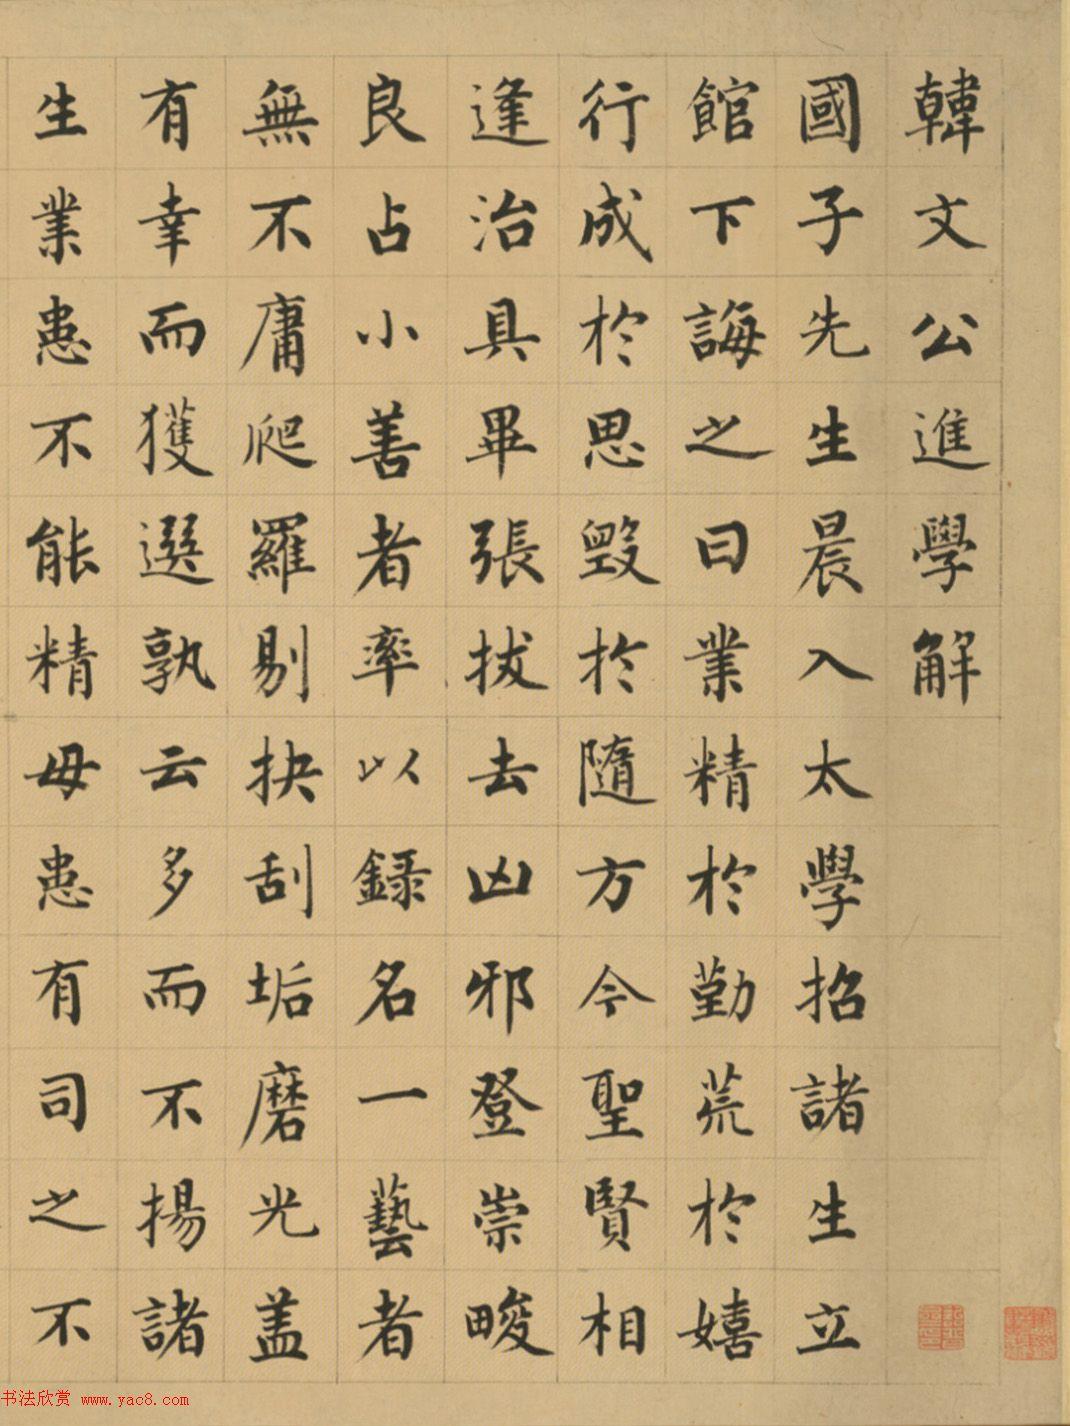 韓文公進學解
國子先生晨入太學招諸生立
館下誨之曰業精於勤荒於嬉
行成於思毀於隨方今聖賢相
逢治具畢張拔去凶邪登崇畯
良占小善者率以録名一藝者
無不庸爬羅剔抉刮垢磨光盖
有幸而獲選孰云多而不揚諸
生業患不能精毋患有司之不
书法欣赏 www.yac8.com